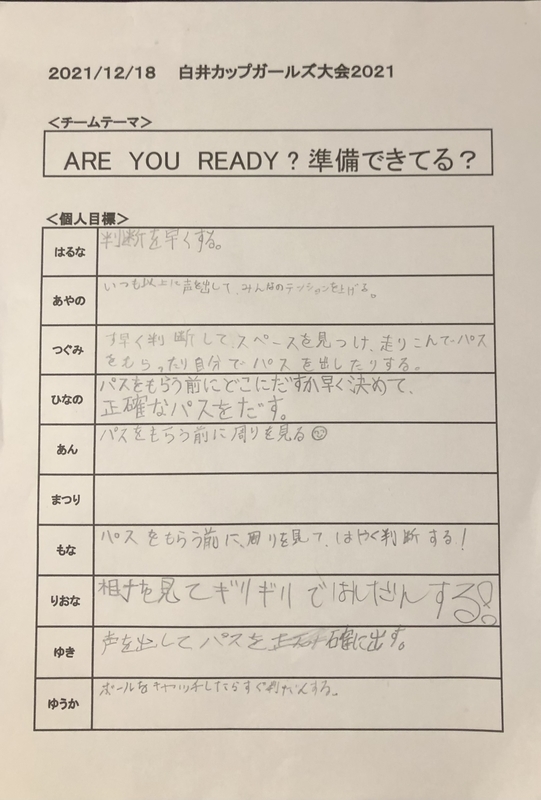 2021/12/18 白井カップガールズ大会2021
＜チームテーマ＞
ARE YOU READY？準備できてる？
＜個人目標＞
はるな
判断を早くする。
あやの
いつも以上に声を出して、みんなのテンションを上げる。
つぐみ
す早く判断して、スペースを見つけ、走りこんでパス
をもらったり自分でパスを出したりする。
ひなの
パスをもらう前にどこにだすか早く決めて、
正確なパスをだす。
あん
パスをもらう前に周りを見る
まつり
もな
パスをもらう前に、周りを見て、はやく判断する！
りおな
相手を見てギリギリではんだんする!!
ゆき
声を出して、パスを正確に出す。
ゆうか
ボールをキャッチしたらすぐ判だんする。